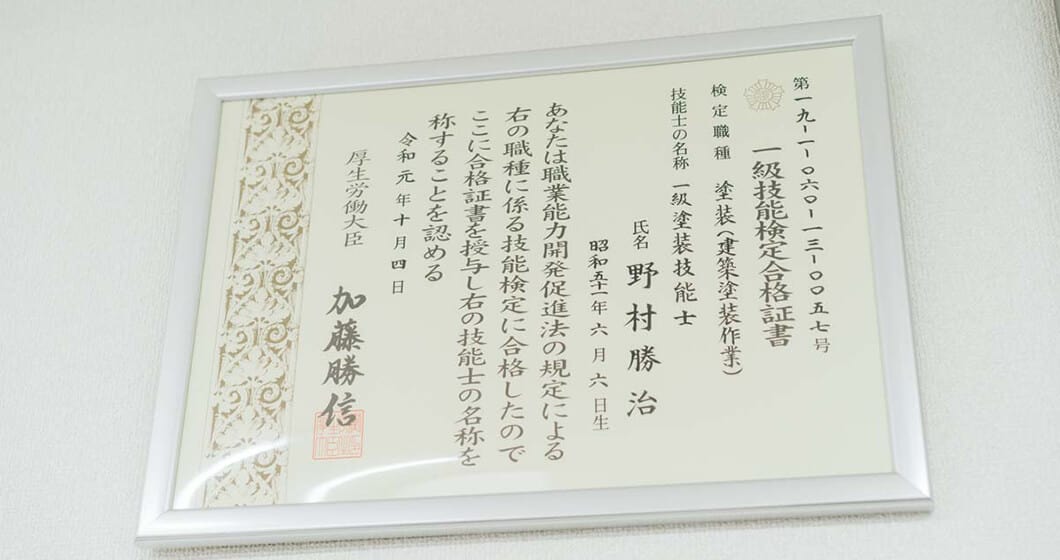 第一九-一-〇六〇-一三-〇〇五七号
一級技能検定合格証書
検定職種 塗装(建築塗装作業)
技能士の名称 一級塗装技能士
氏名 野村勝治
昭和五十一年六月六日生
あなたは職業能力開発促進法の規定による
右の職種に係る技能検定に合格したので
ここに合格証書を授与し右の技能士の名称を
称することを認める
令和元年十月四日
厚生労働大臣 加藤勝信